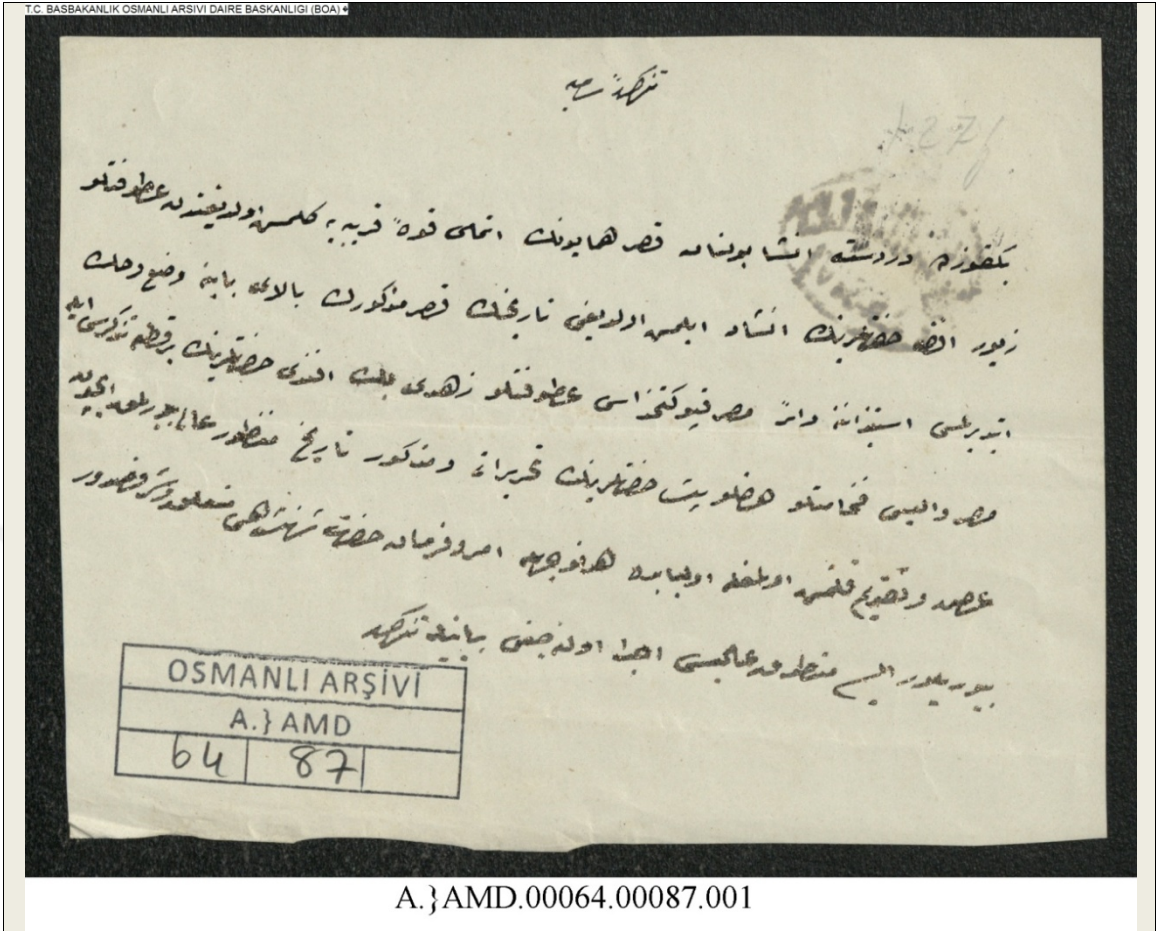 T.C. BASBAKANLIK OSMANLI ARSIVI DAIRE BASKANLIGI (BOA)
تذكرهٔ ساميه
بكقوزده دردست انشا بولنان قصر همايونك اتمامى قوهٔ قريبه يه كلمش اولديغندن عطوفتلو
زيور افندى حضرتلرينك انشاد ايلمش اولديغى تاريخك قصر مذكورك بالاى بابنه وضع وحك
ايتديرلمسى استيذاننه دائر مصر قپوكتخداسى عطوفتلو زهدى بك افندى حضرتلرينك بر قطعه تذكره سى ايله
مصر واليسى فخامتلو حضرتلرينك تحريراتى ومذكور تاريخ منظور عالى بيورلمق ايچون
عرض وتقديم قلنمش اولمغله اولبابده هر نوجهله امر وفرمان حضرت شهنشاهى متعلق وشرفصدور
بيوريلور ايسه منطوق عاليسى اجرا اولنه جغى بيانيله تذكره
OSMANLI ARŞİVİ
A.}AMD
64 87
A.}AMD.00064.00087.001